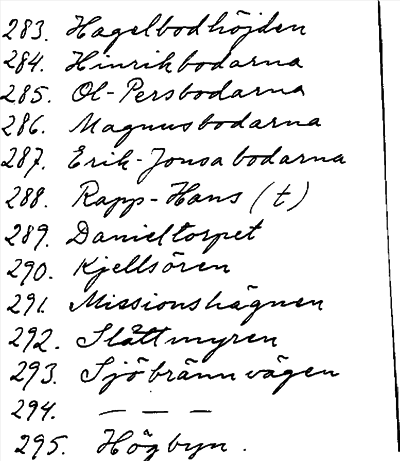 283. Hagelbodhöjden
284. Hinrikbodarna
285. Ol-Persbodarna
286. Magnusbodarna
287. Erik-Jonsabodarna
288. Rapp-Hans (t)
289. Danieltorpet
290. Kjellsören
291. Missionshägnen
292. Slåttmyren
293. Sjöbrännvägen
294. — — —
295. Högbyn.